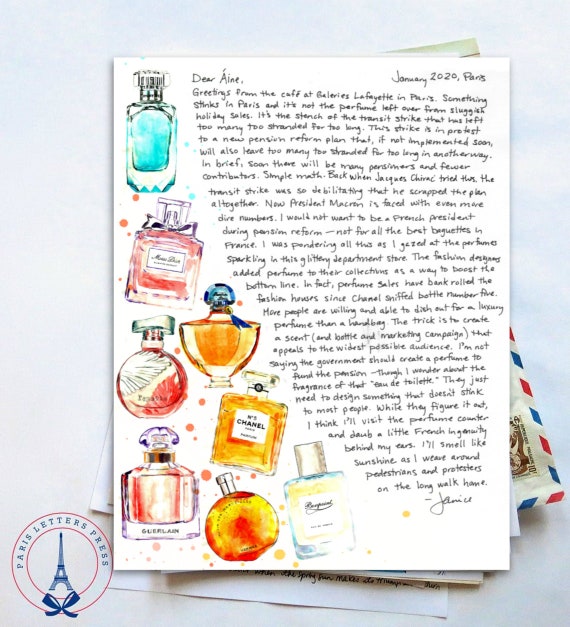 Dear Áine,
January 2020, Paris
Greetings from the café at Galeries Lafayette in Paris. Something
stinks in Paris and it's not the perfume left over from sluggish
holiday sales. It's the stench of the transit strike that has left
too many too stranded for too long. This strike is in protest
to a new pension reform plan that, if not implemented soon,
will also leave too many too stranded for too long in another way.
In brief, soon there will be many pensioners and fewer
contributors. Simple math. Back when Jacques Chirac tried this, the
transit strike was so debilitating that he scrapped the plan
altogether. Now President Macron is faced with even more
dire numbers. I would not want to be a French president
during pension reform — not for all the best baguettes in
France. I was pondering all this as I gazed at the perfumes
sparkling in this glittery department store. The fashion designers
added perfume to their collections as a way to boost the
bottom line. In fact, perfume sales have bank rolled the
fashion houses since Chanel sniffed bottle number five.
More people are willing and able to dish out for a luxury
perfume than a handbag. The trick is to create
a scent (and bottle and marketing campaign) that
appeals to the widest possible audience. I'm not
saying the government should create a perfume to
fund the pension — though I wonder about the
fragrance of that "eau de toilette." They just
need to design something that doesn't stink
to most people. While they figure it out,
I think I'll visit the perfume counter
and daub a little French ingenuity
behind my ears. I'll smell like
sunshine as I weave around
pedestrians and protesters
on the long walk home.
— Janice
Miss Dior
N°5
CHANEL
PARFUM
GUERLAIN
PARIS LETTERS PRESS